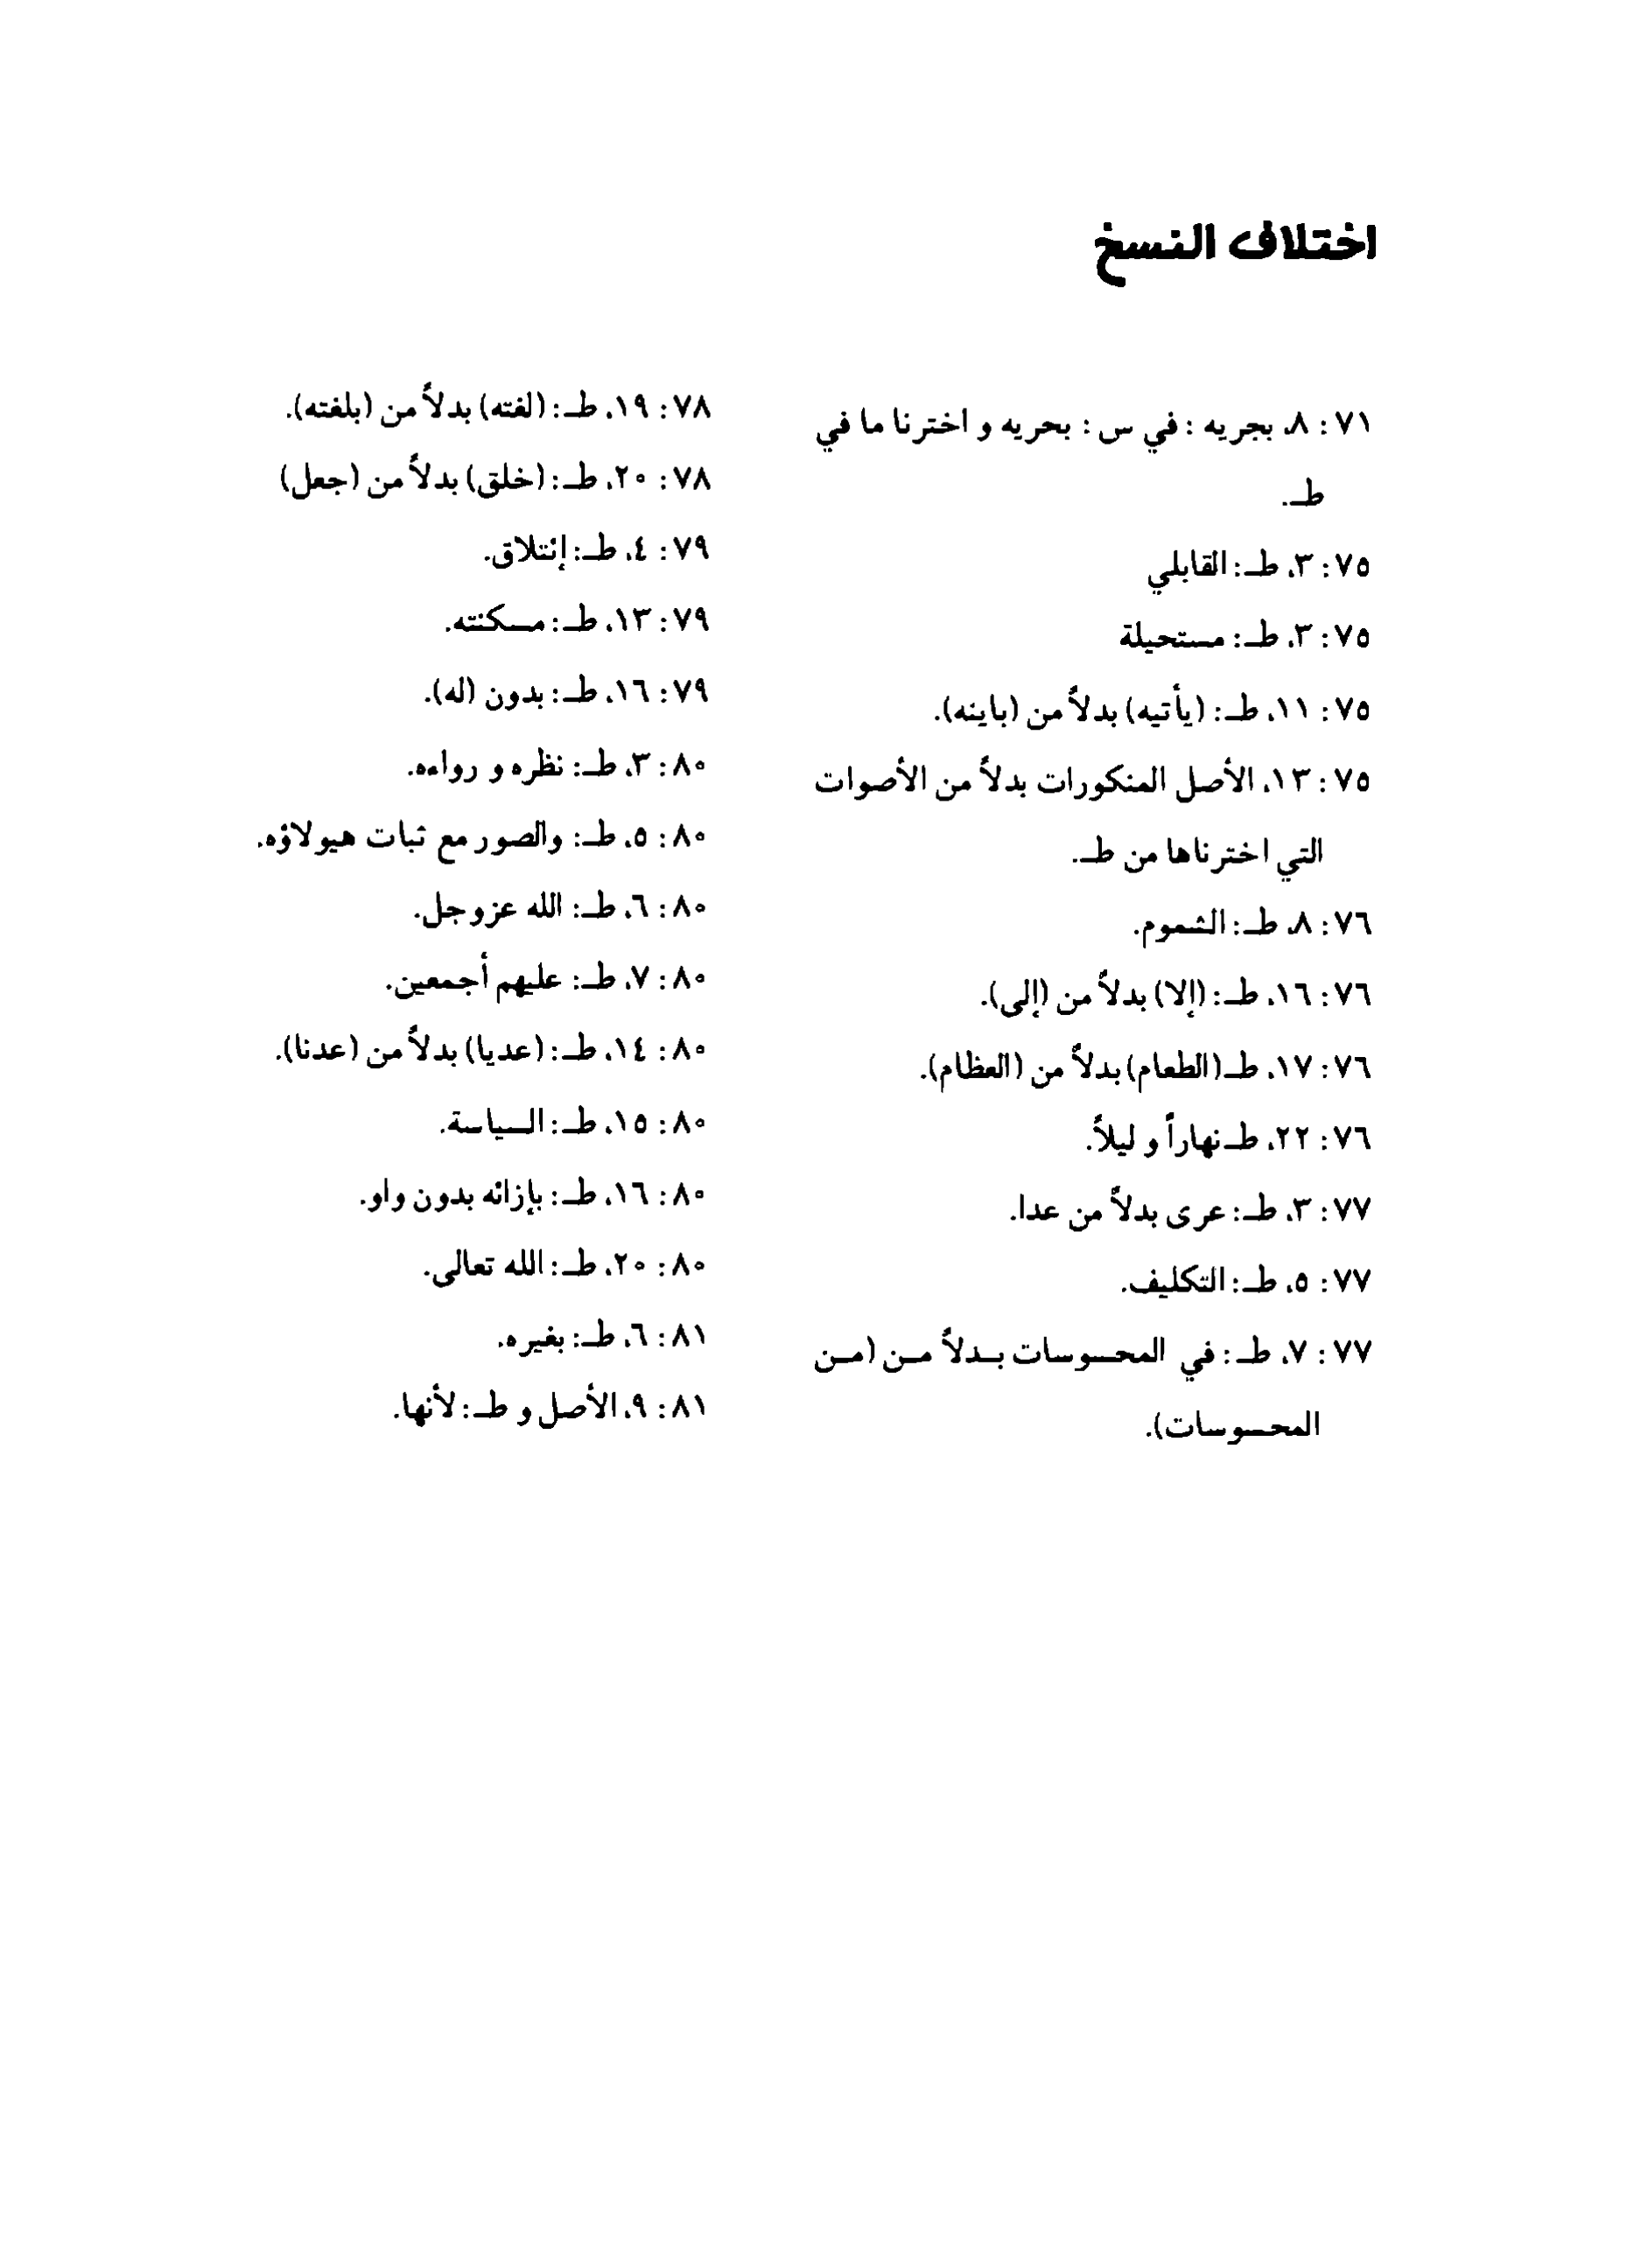 اختلاف النسخ
٧١: ٨، بجريه : في س : بحريه و اخترنا ما في
طـ.
٧٥: ٣، طـ: القابلي
٧٥: ٣، طـ: مستحيلة
٧٥: ١١، طـ: (يأتيه) بدلاً من (باينه).
٧٥: ١٣، الأصل المنكورات بدلاً من الأصوات
التي اخترناها من طـ.
٧٦: ٨، طـ: الشموم.
٧٦: ١٦، طـ: (إلا) بدلاً من (إلى).
٧٦: ١٧، طـ (الطعام) بدلاً من (العظام).
٧٦: ٢٢، طـ نهاراً و ليلاً.
٧٧: ٣، طـ: عرى بدلاً من عدا.
٧٧: ٥، طـ: التكليف.
٧٧: ٧، طـ: في المحسوسات بـدلاً مـن (مـن
المحسوسات).
٧٨: ١٩، طـ: (لفته) بدلاً من (بلفته).
٧٨: ٢٠، طـ: (خلق) بدلاً من (جعل)
٧٩: ٤، طـ: إئتلاق.
٧٩: ١٣، طـ: مسكنته.
٧٩: ١٦، طـ: بدون (له).
٨٠: ٣، طـ: نظره و رواءه.
٨٠: ٥، طـ: والصور مع ثبات هيولاؤه.
٨٠: ٦، طـ: الله عزوجل.
٨٠: ٧، طـ: عليهم أجمعين.
٨٠: ١٤، طـ: (عديا) بدلاً من (عدنا).
٨٠: ١٥، طـ: السياسة.
٨٠: ١٦، طـ: بإزائه بدون واو.
٨٠: ٢٠، طـ: الله تعالى.
٨١: ٦، طـ: بغيره.
٨١: ٩، الأصل و طـ: لأنها.